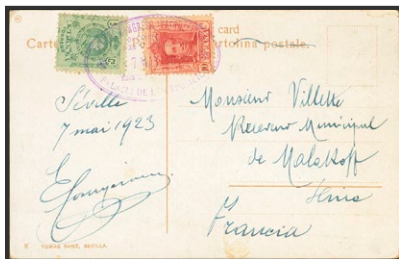 card
Carto
Cartolina postale.
Séville
7 mai 1923
Monsieur Villette
Receveur Municipal
de Malakoff
Seine
Francia
TOMAS SANZ, SEVILLA.